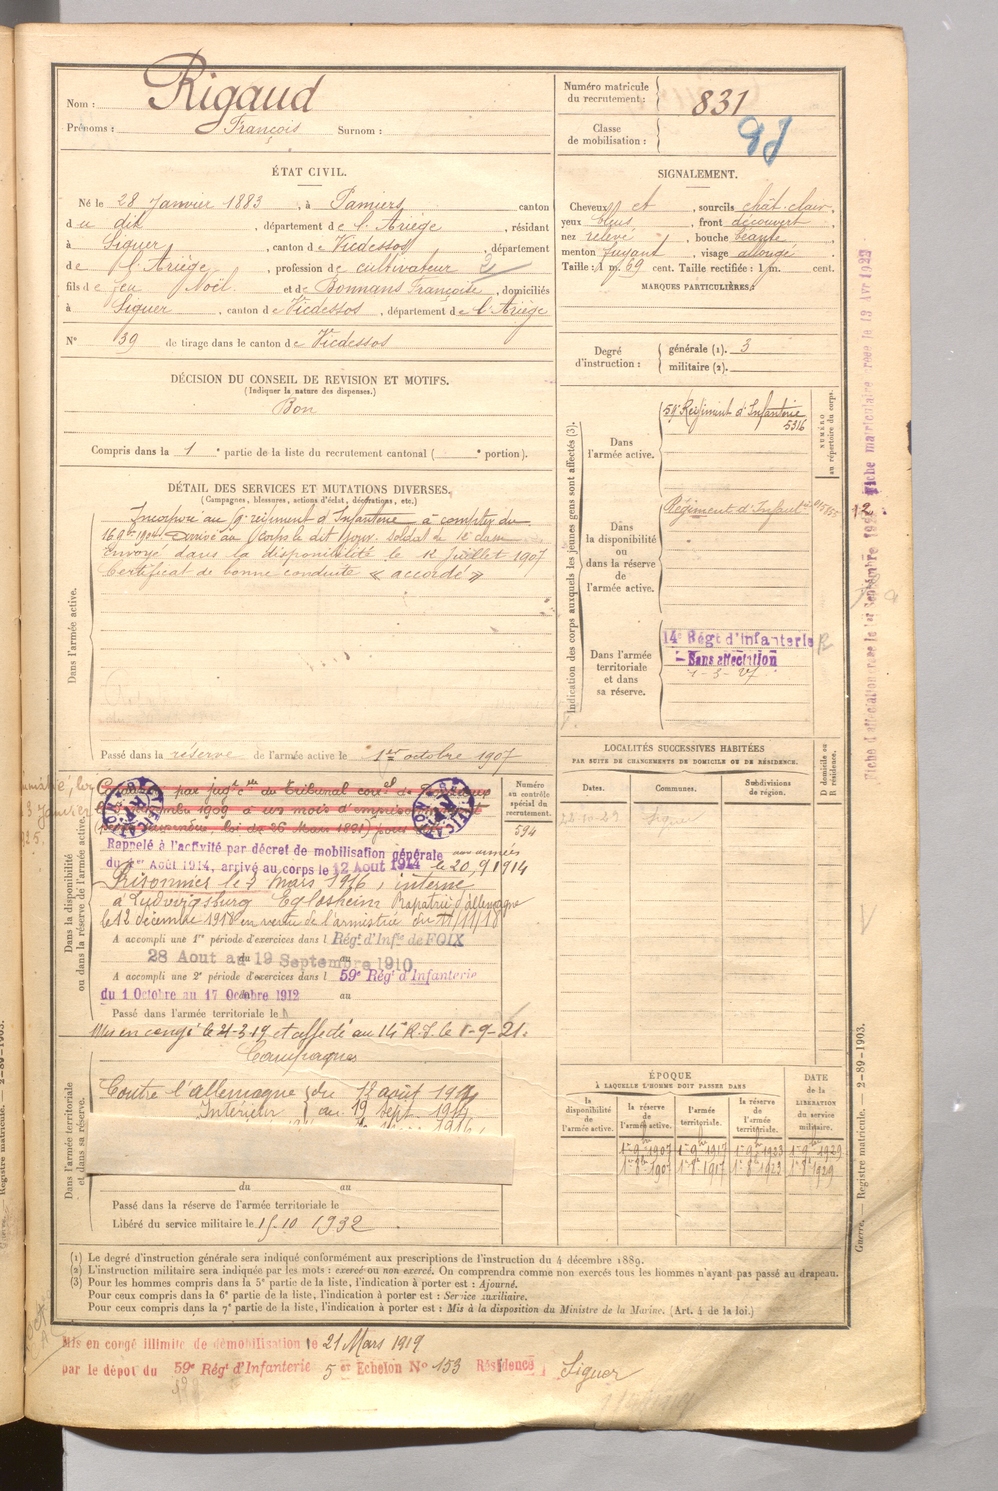 Nom : Rigaud
Prénoms : François Surnom :
Numéro matricule du recrutement : 831
Classe de mobilisation :
ÉTAT CIVIL.
Né le 28 Janvier 1883, à Pamiers canton
du dit, département de l'Ariège, résidant
à Siguer, canton de Vicdessos, département
de l'Ariège, profession de cultivateur
fils de feu Noël et de Bonnans Françoise, domiciliés
à Siguer, canton de Vicdessos, département de l'Ariège
N° 39 de tirage dans le canton de Vicdessos
SIGNALEMENT.
Cheveux et, sourcils chât. clair,
yeux bleus, front découvert
nez relevé, bouche béante,
menton fuyant, visage allongé
Taille : 1 m. 69 cent. Taille rectifiée : 1 m. cent.
MARQUES PARTICULIÈRES :
Degré d'instruction : générale (1). 3
militaire (2).
DÉCISION DU CONSEIL DE REVISION ET MOTIFS.
(Indiquer la nature des dispenses.)
Bon
Compris dans la 1e partie de la liste du recrutement cantonal ( e portion).
DÉTAIL DES SERVICES ET MUTATIONS DIVERSES.
(Campagnes, blessures, actions d'éclat, décorations, etc.)
Dans l'armée active.
Incorporé au 9e régiment d'Infanterie à compter du
16 9bre 1904 Arrivé au corps le dit jour. Soldat de 2e classe
Envoyé dans la disponibilité le 12 Juillet 1907
Certificat de bonne conduite « accordé »
Passé dans la réserve de l'armée active le 1er octobre 1907
Indication des corps auxquels les jeunes gens sont affectés (3).
NUMÉRO au répertoire du corps.
Dans l'armée active.
59e Régiment d'Infanterie
5316
Dans la disponibilité ou dans la réserve de l'armée active.
Régiment d'Infant
Dans l'armée territoriale et dans sa réserve.
14e Régt d'Infanterie
Sans affectation
1-5-27
LOCALITÉS SUCCESSIVES HABITÉES
PAR SUITE DE CHANGEMENTS DE DOMICILE OU DE RÉSIDENCE.
Dates. Communes. Subdivisions de région. D domicile ou R résidence.
22-10-23 Siguer
Dans la disponibilité ou dans la réserve de l'armée active.
Numéro au contrôle spécial du recrutement.
594
par jugt du Tribunal corel de
1909 à un mois d'emprisonnement
loi du 26 Mars 1891) pour
Rappelé à l'activité par décret de mobilisation générale aux armées
du 1er Août 1914, arrivé au corps le 12 Août 1914 le 20/9 1914
Prisonnier le 3 mars 1916, interné
à Ludwigsburg Eglosheim Rapatrié d'Allemagne
le 12 décembre 1918 en vertu de l'armistice du 11/11/18
A accompli une 1re période d'exercices dans l Régt d'Infie de FOIX
28 Aout au 19 Septembre 1910
A accompli une 2e période d'exercices dans l 59e Régt d'Infanterie
du 1 Octobre au 17 Octobre 1912 au
Passé dans l'armée territoriale le
Mis en congé le 21-3-19 et affecté au 14e R.I. le 1-9-21.
Campagnes
Dans l'armée territoriale et dans sa réserve.
Contre l'allemagne du 12 août 1914
Intérieur au 19 sept. 1914
du au
Passé dans la réserve de l'armée territoriale le
Libéré du service militaire le 15-10 1932
ÉPOQUE
À LAQUELLE L'HOMME DOIT PASSER DANS
DATE DE LA LIBÉRATION du service militaire.
la disponibilité de l'armée active. la réserve de l'armée active. l'armée territoriale. la réserve de l'armée territoriale.
1er 9bre 1907 1er 9bre 1917 1er 9bre 1923 1er 9bre 1929
1er 8bre 1907 1er 8bre 1917 1er 8bre 1923 1er 8bre 1929
(1) Le degré d'instruction générale sera indiqué conformément aux prescriptions de l'instruction du 4 décembre 1889.
(2) L'instruction militaire sera indiquée par les mots : exercé ou non exercé. On comprendra comme non exercés tous les hommes n'ayant pas passé au drapeau.
(3) Pour les hommes compris dans la 5e partie de la liste, l'indication à porter est : Ajourné.
Pour ceux compris dans la 6e partie de la liste, l'indication à porter est : Service auxiliaire.
Pour ceux compris dans la 7e partie de la liste, l'indication à porter est : Mis à la disposition du Ministre de la Marine. (Art. 4 de la loi.)
Mis en congé illimité de démobilisation le 21 Mars 1919
par le dépôt du 59e Régt d'Infanterie 5 er Echelon N° 153 Résidence Siguer
Guerre. — Registre matricule. — 2-89-1903.
Fiche d'affectation créée le 1er Septembre 192
Fiche matriculaire créée le 13 Avr 1922